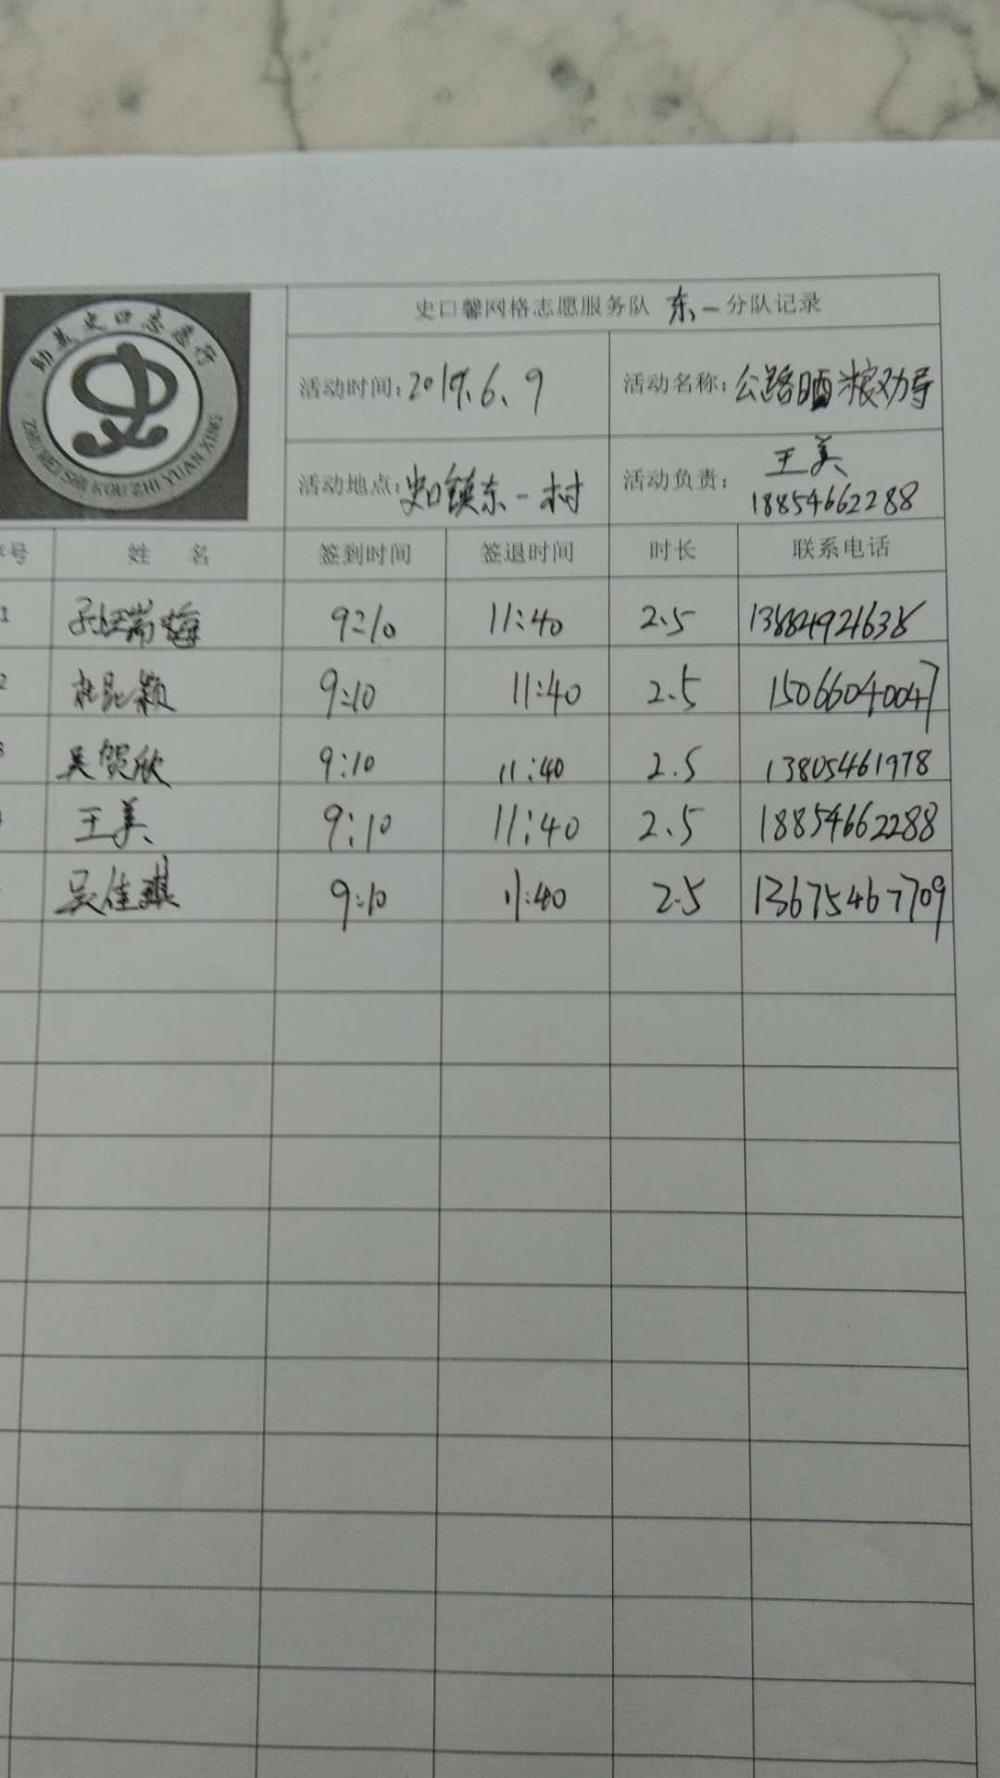 助美史口志愿行
ZHU MEI SHI KOU ZHI YUAN XING
史口馨网格志愿服务队 东一 分队记录
活动时间: 2017.6.9 活动名称: 公路晒粮劝导
活动地点: 史口镇东一村 活动负责: 王美 18854662288
序号 姓 名 签到时间 签退时间 时长 联系电话
1 孙瑞梅 9:10 11:40 2.5 13884921638
2 颖 9:10 11:40 2.5 15066040047
3 吴贺欣 9:10 11:40 2.5 13805461978
王美 9:10 11:40 2.5 18854662288
吴佳琪 9:10 11:40 2.5 13675467709